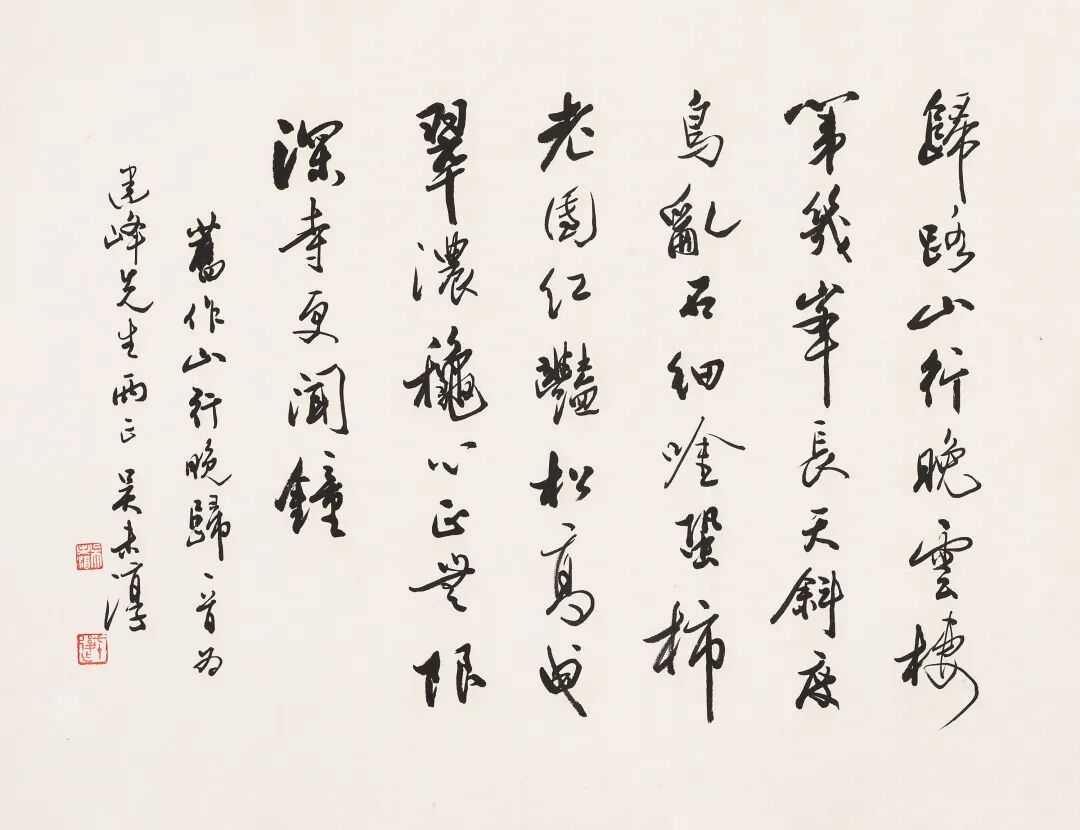 歸路山行晚雲棲
第幾峯長天斜度
鳥亂石細唫蛩柿
老園紅豔松高
翠濃龝心正無限
深寺更聞鐘
舊作山行晚歸一首為
建峰先生兩正 吳未淳